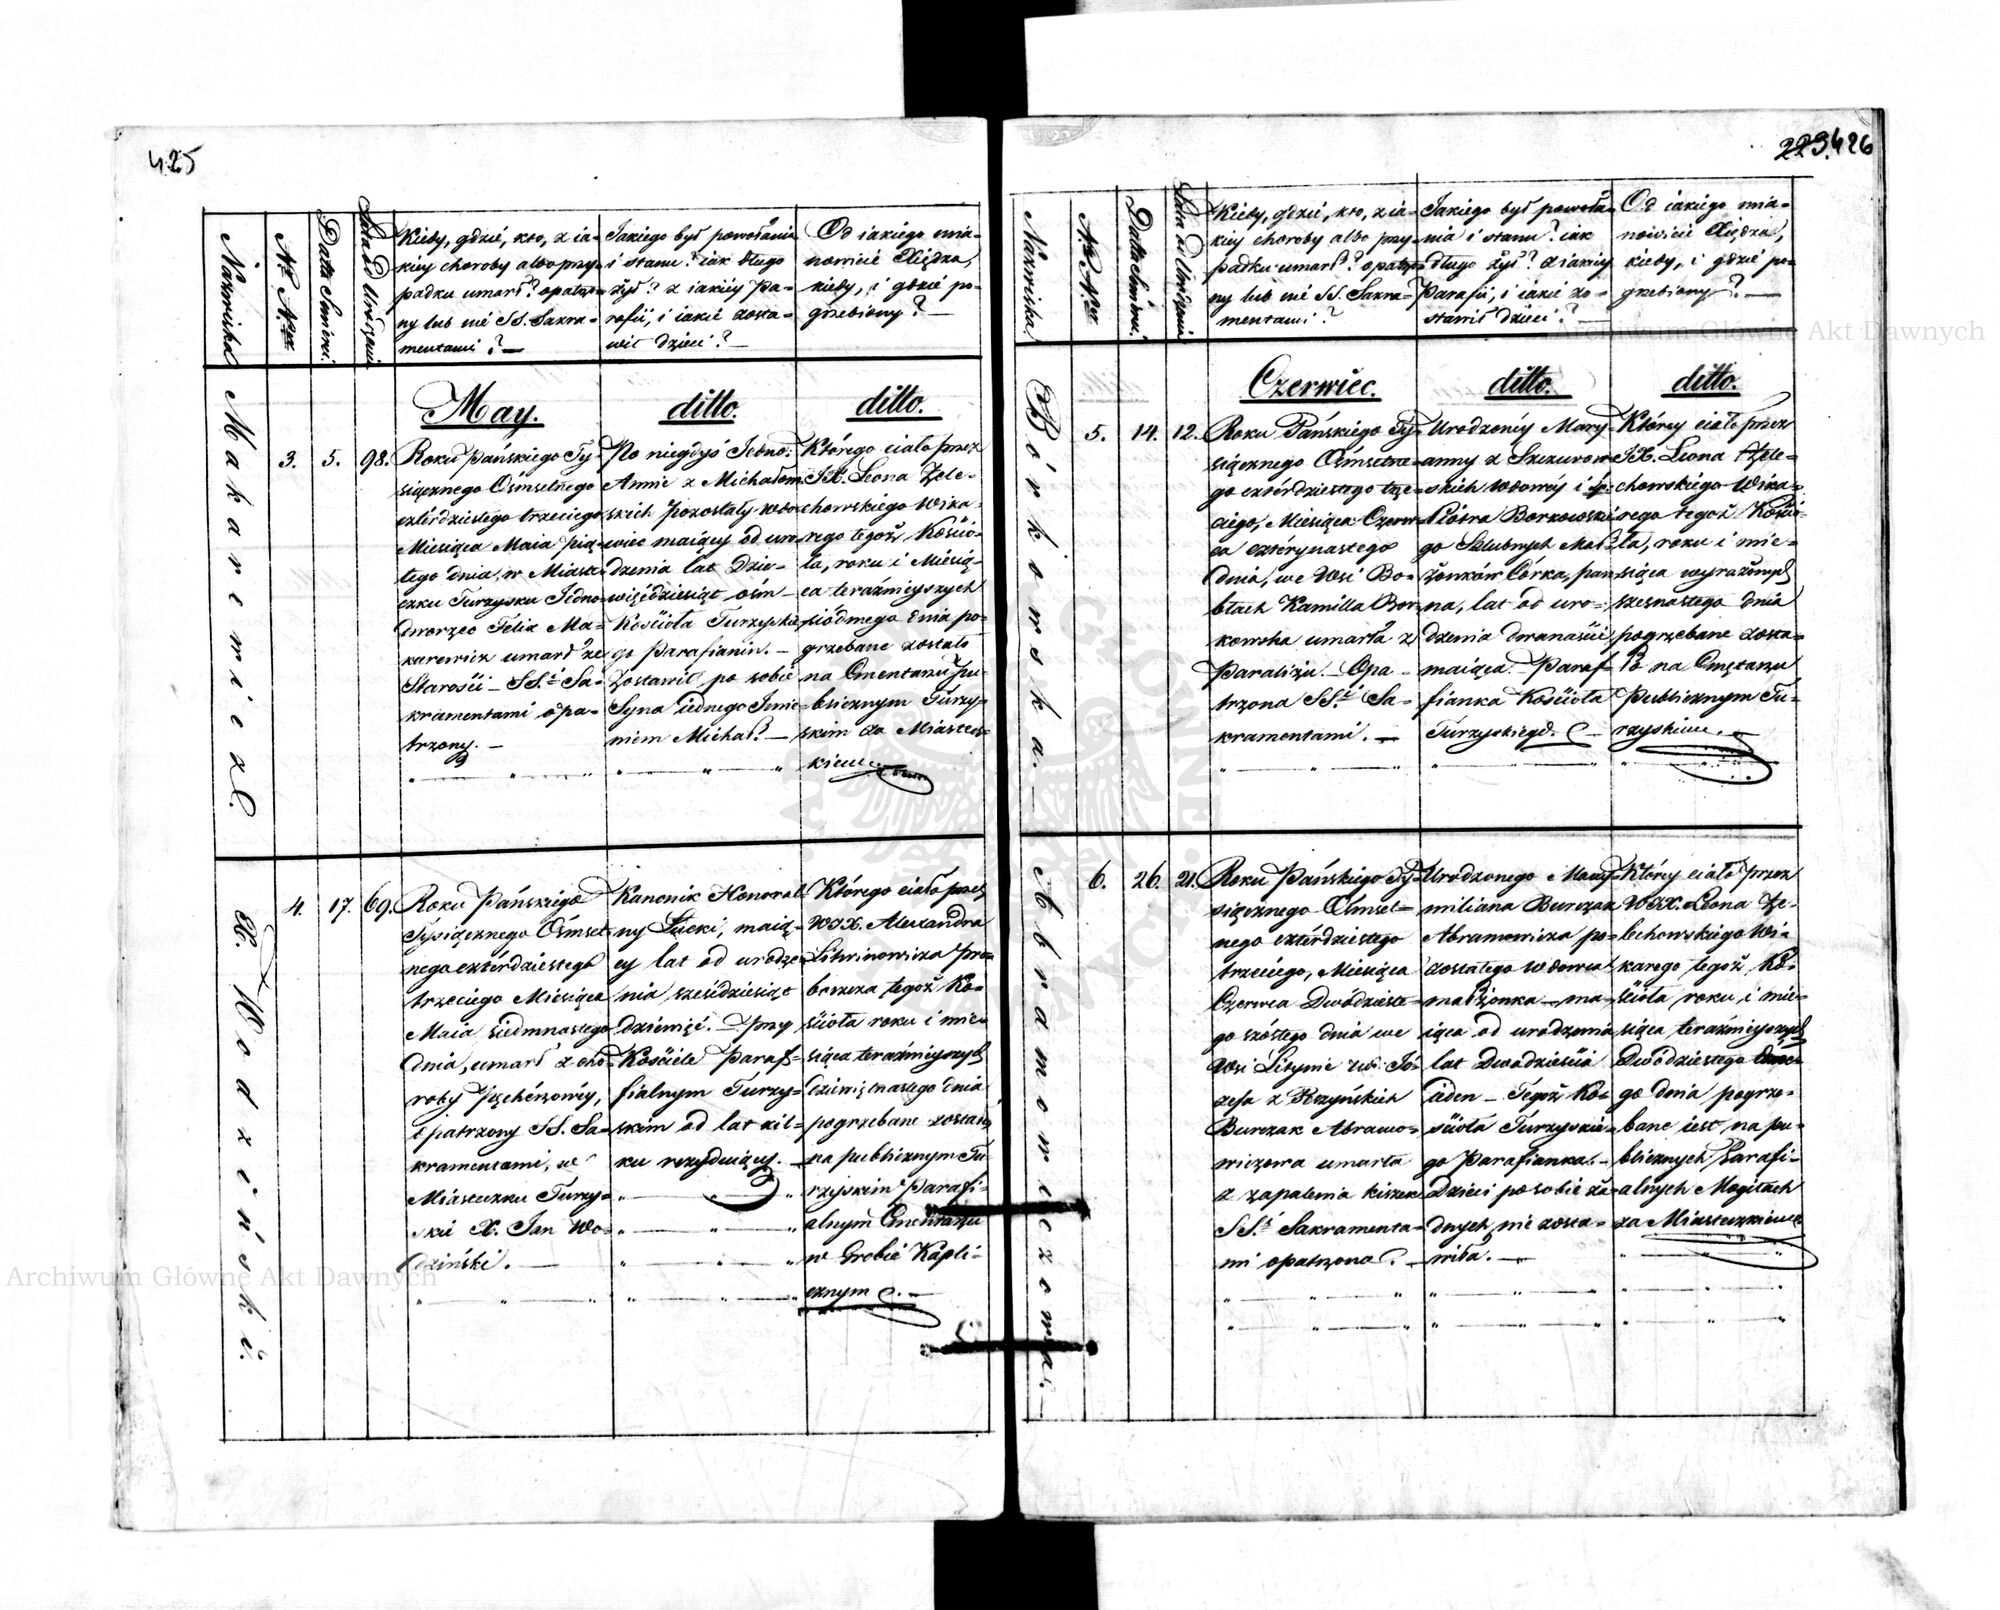 425
Nazwiska
Nr Aktu
Data Śmierci
Lata od Urodzenia
Kiedy, gdzie, kto, z ia=
kiey choroby albo przy=
padku umarł? opatrzo=
ny lub nié SS. Sakra=
mentami?
Jakiego był powołania
i stanu? iak długo
żył? z iakiéy Pa=
rafii, i iakié zosta=
wił dzieci?
Od iakiego mia=
nowicie Xiędza,
kiedy, i gdzié po=
grzebiony?
Makarewicz.
3.
5.
98.
May.
Roku Pańskiego Ty=
siącznego Ośmsetnego
cztérdziestego trzeciego
Miesiąca Maia pią=
tego dnia, w Miaste=
czku Turzysku Jedno=
dworzec Felix Ma=
karewicz umarł ze
Starości – SS.i Sa=
kramentami opa=
trzony. –
ditto.
Po niegdyś Jedno:
Annie z Michałow=
skich pozostały wdo=
wiec maiący od uro=
dzenia lat Dzie=
więćdziesiąt ośm –
Kościoła Turzyskie=
go Parafianin. –
Zostawił po sobie
Syna iednego Imie=
niem Michał? –
ditto.
Którego ciało przez
JX. Leona Żele=
chowskiego Wika=
rego tegoż Kościo=
ła, roku i Miesią=
ca teraźnieyszych
siódmego dnia po=
grzebane zostało
na Cmentarzu Pu=
blicznym Turzy=
skim za Miastecz=
kiem.
X. Wodziński.
4.
17.
69.
Roku Pańskiego
Tysiącznego Ośmset=
nego cztérdziestego
trzeciego Miesiąca
Maia siedmnastego
dnia, umarł z cho=
roby Pęchérzowéy,
opatrzony SS. Sa=
kramentami, we
Miasteczku Turzy=
sku X. Jan Wo=
dziński.
Kanonik Honoral=
ny Łucki, maią=
cy lat od urodze=
nia sześćdziesiąt
dziéwięć. – przy
Kościele Paraf=
fialnym Turzy=
skim od lat kil=
ku rezyduiący.
Którego ciało przez
WJX. Alexandra
Litwinowicza Pro=
boszcza tegoż Ko=
ścioła roku i mie=
siąca teraźnieyszych
dziewiętnastego dnia
pogrzebane zostało
na publicznym Tu=
rzyskim Parafi=
alnym Cmentarzu
w Grobie Kapli=
cznym.
223.426
Nazwiska
Nr Aktu
Data Śmierci
Lata od Urodzenia
Kiedy, gdzié, kto, z ia=
kiey choroby albo przy=
padku umarł? opatrzo=
ny lub nié SS. Sakra=
mentami?
Jakiego był powoła=
nia i stanu? iak
długo żył? z iakiéy
Parafii, i iakié zo=
stawił dzieci?
Od iakiego mia=
nowicié Xiędza,
kiedy, i gdzié po=
grzebiony?
Bórkowska.
5.
14.
12.
Czerwiec.
Roku Pańskiego Ty=
siącznego Ośmsetne=
go cztérdziestego trze=
ciego, Miesiąca Czerw=
ca czternastego
dnia, we Wsi Bo=
błach Kamilla Bor=
kowska umarła z
Paraliżu. Opa=
trzona SS.i Sa=
kramentami. –
ditto.
Urodzonéy Mary=
anny z Szczurow=
skich wdowéy i
Piotra Borkowskie=
go Szlubnych Mał=
żonków Córka, pan=
na, lat od uro=
dzenia dwanaście
maiąca. Paraf=
fianka Kościoła
Turzyskiego.
ditto.
Któréy ciało przez
JX. Leona Żele=
chowskiego Wika=
rego tegoż Kościo=
ła, roku i mie=
siąca wyrażonych
szesnastego dnia
pogrzebane zosta=
ło na Cmętarzu
Publicznym Tu=
rzyskim.
Abramowiczowa.
6.
26.
21.
Roku Pańskiego Ty=
siącznego Ośmset=
nego cztérdziestego
trzeciego, Miesiąca
Czerwca Dwódzieste=
go szóstego dnia we
Wsi Lityniu Jó=
zefa z
Burczak Abramo=
wiczowa umarła
z zapalenia kiszek
SS.i Sakramenta=
mi opatrzona.
Urodzonego Maxy=
miliana Burczak
Abramowicza po=
zostałego wdowca
małżonka – ma=
iąca od urodzenia
lat Dwadzieścia
ieden – Tegoż Ko=
ścioła Turzyskie=
go Parafianka. –
Dzieci po sobie ża=
dnych nié zosta=
wiła. –
Któréy ciało przez
WJX. Leona Że=
lechowskiego Wi=
karego tegoż Ko=
ścioła roku i mie=
siąca teraźnieyszych
Dwódziestego
go dnia pogrze=
bane iest na pu=
blicznych Parafi=
alnych Mogiłach
za Miasteczkiem
Archiwum Główne Akt Dawnych
Archiwum Główne Akt Dawnych